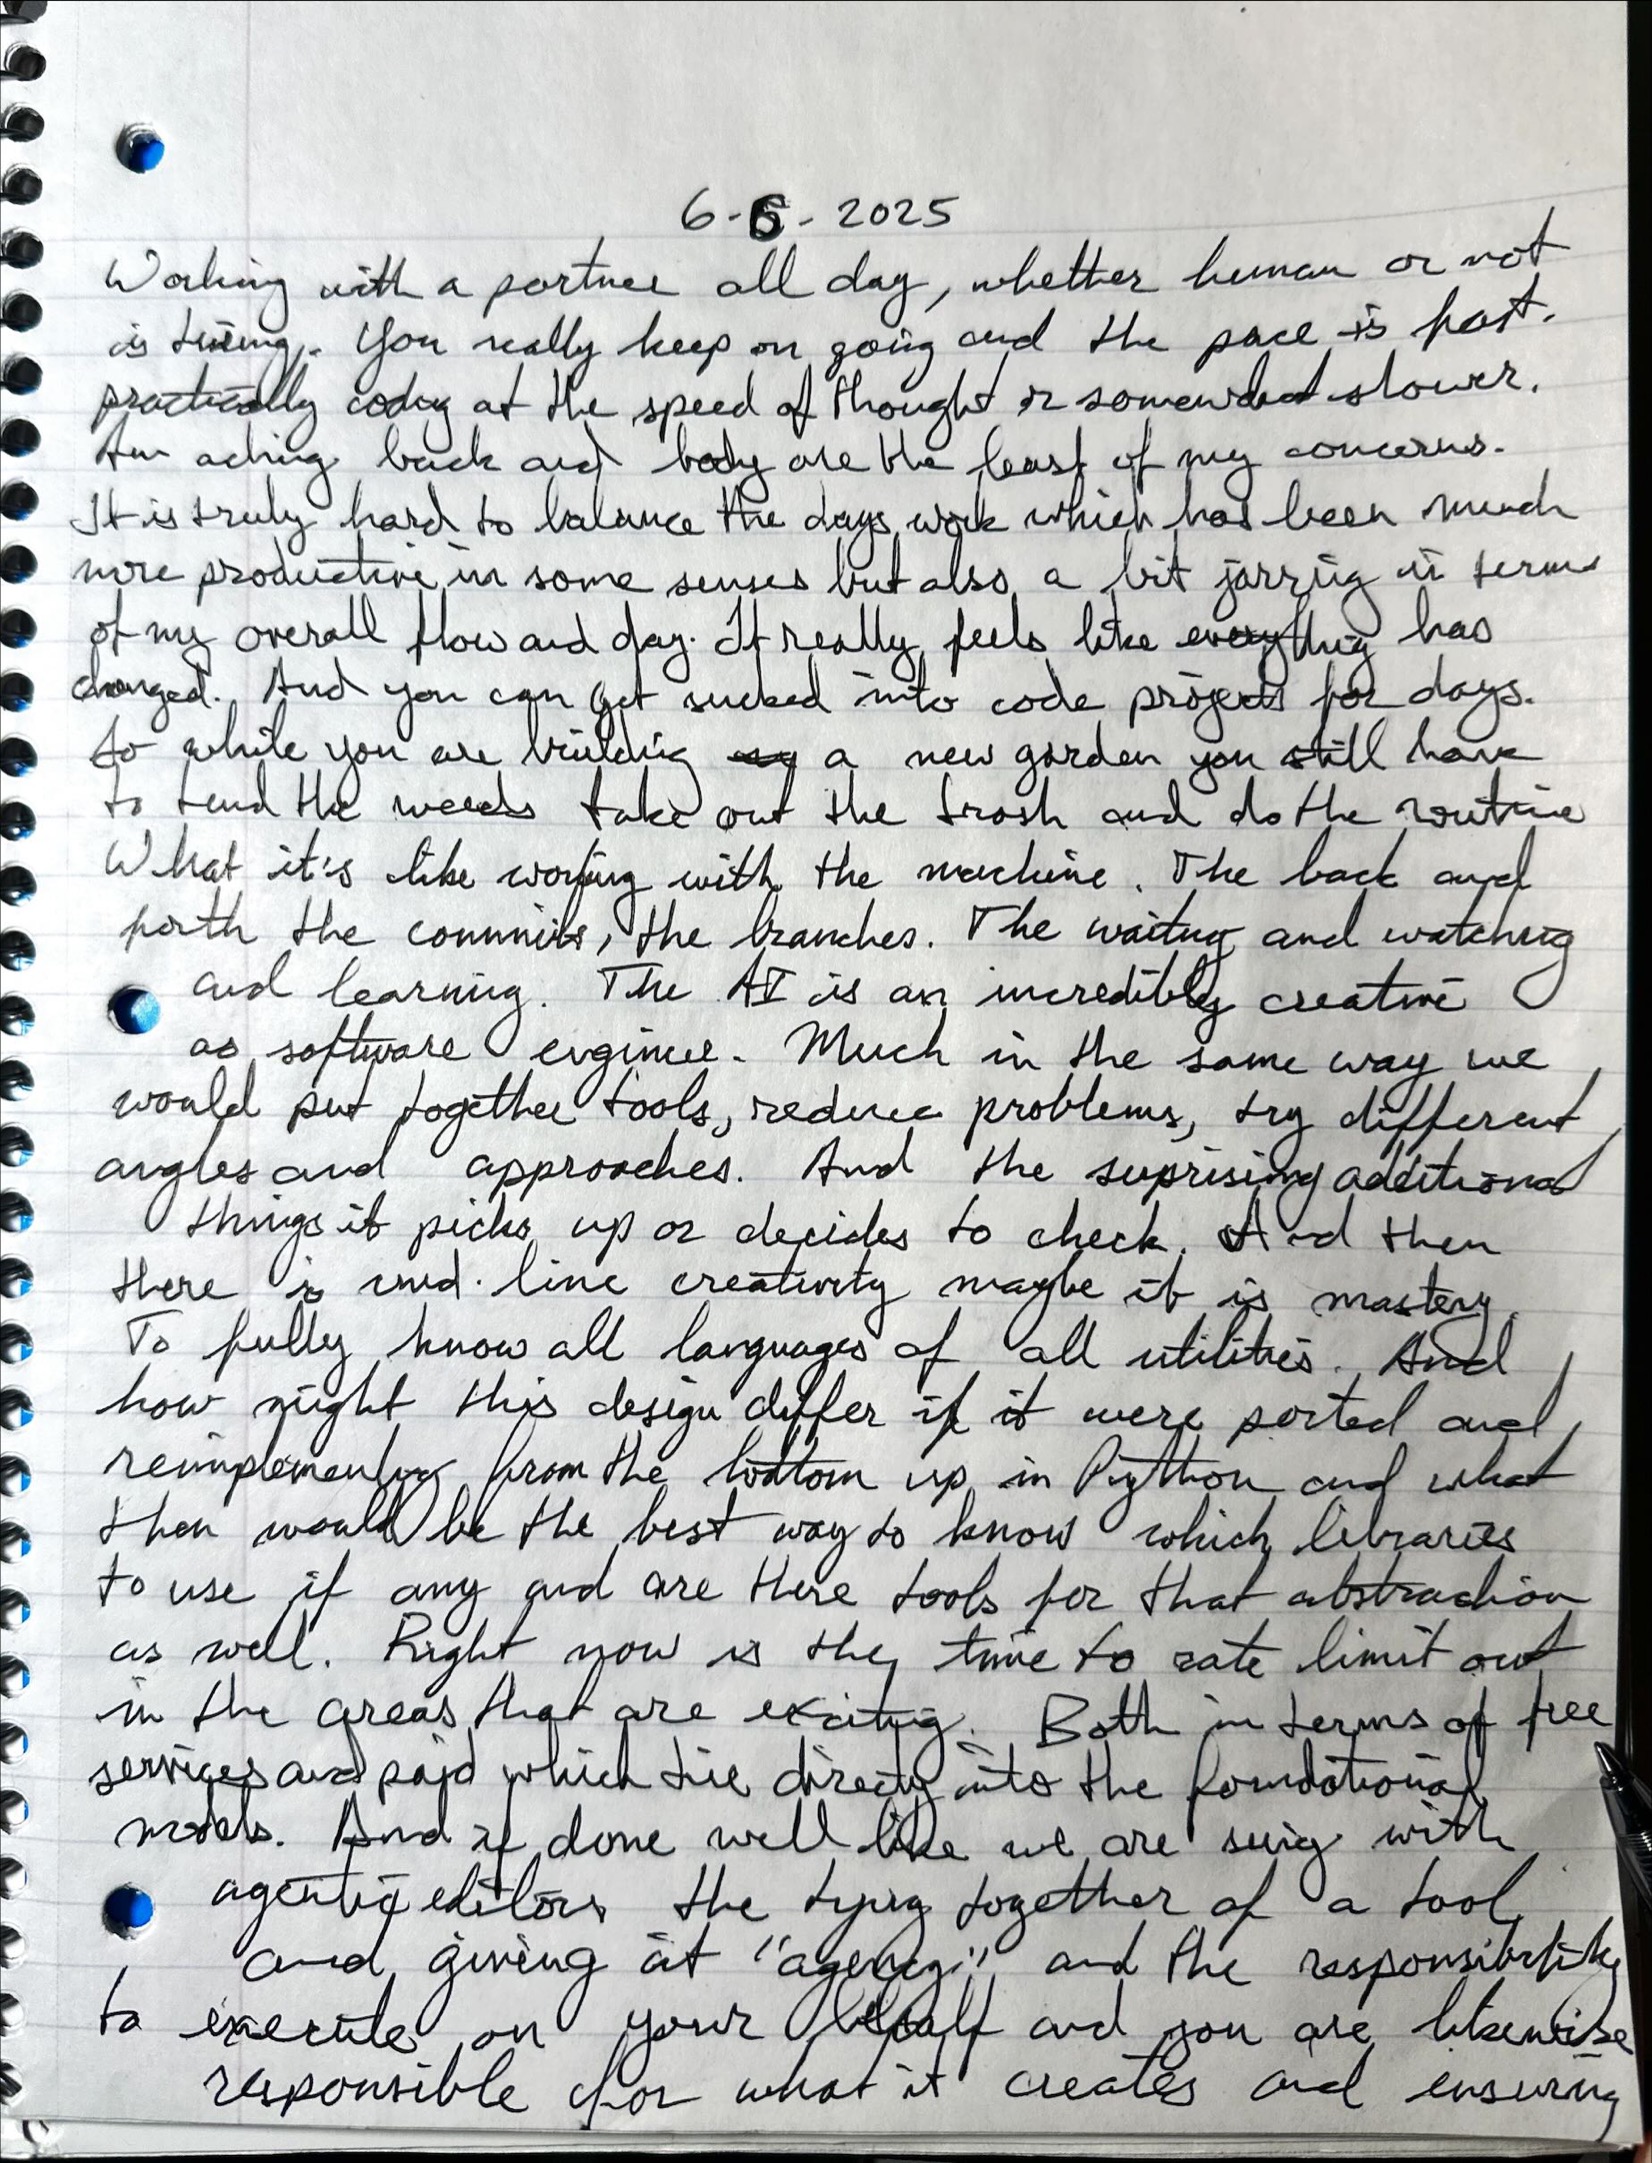 6-6-2025
Working with a partner all day, whether human or not
is tiring. You really keep on going and the pace is fast.
practically coding at the speed of thought or somewhat slower.
An aching back and body are the least of my concerns.
It is truly hard to balance the days work which has been much
more productive in some senses but also a bit jarring in terms
of my overall flow and day. It really feels like everything has
changed. And you can get sucked into code projects for days.
So while you are building a new garden you still have
to tend the weeds take out the trash and do the routine
What it's like working with the machine. The back and
forth the commits, the branches. The waiting and watching
and learning. The AI is an incredibly creative
as software engineer. Much in the same way we
would put together tools, reduce problems, try different
angles and approaches. And the suprising additional
things it picks up or decides to check. And then
there is cmd. line creativity maybe it is mastery.
To fully know all languages of all utilities. And
how might this design differ if it were ported and
reimplementing from the bottom up in Python and what
then would be the best way to know which libraries
to use if any and are there tools for that abstraction
as well. Right now is the time to rate limit out
in the areas that are exciting. Both in terms of free
services and paid which tie directly into the foundational
models. And if done well like we are seeing with
agentic editors the tying together of a tool
and giving it "agency" and the responsibility
to execute on your behalf and you are likewise
responsible for what it creates and ensuring